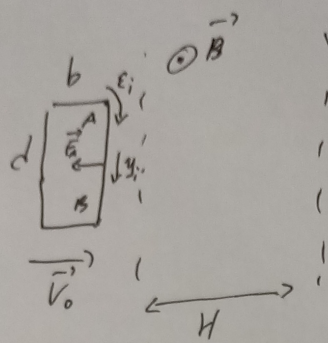 B
b
εi
A
d
Fa
yi
B
V₀
H